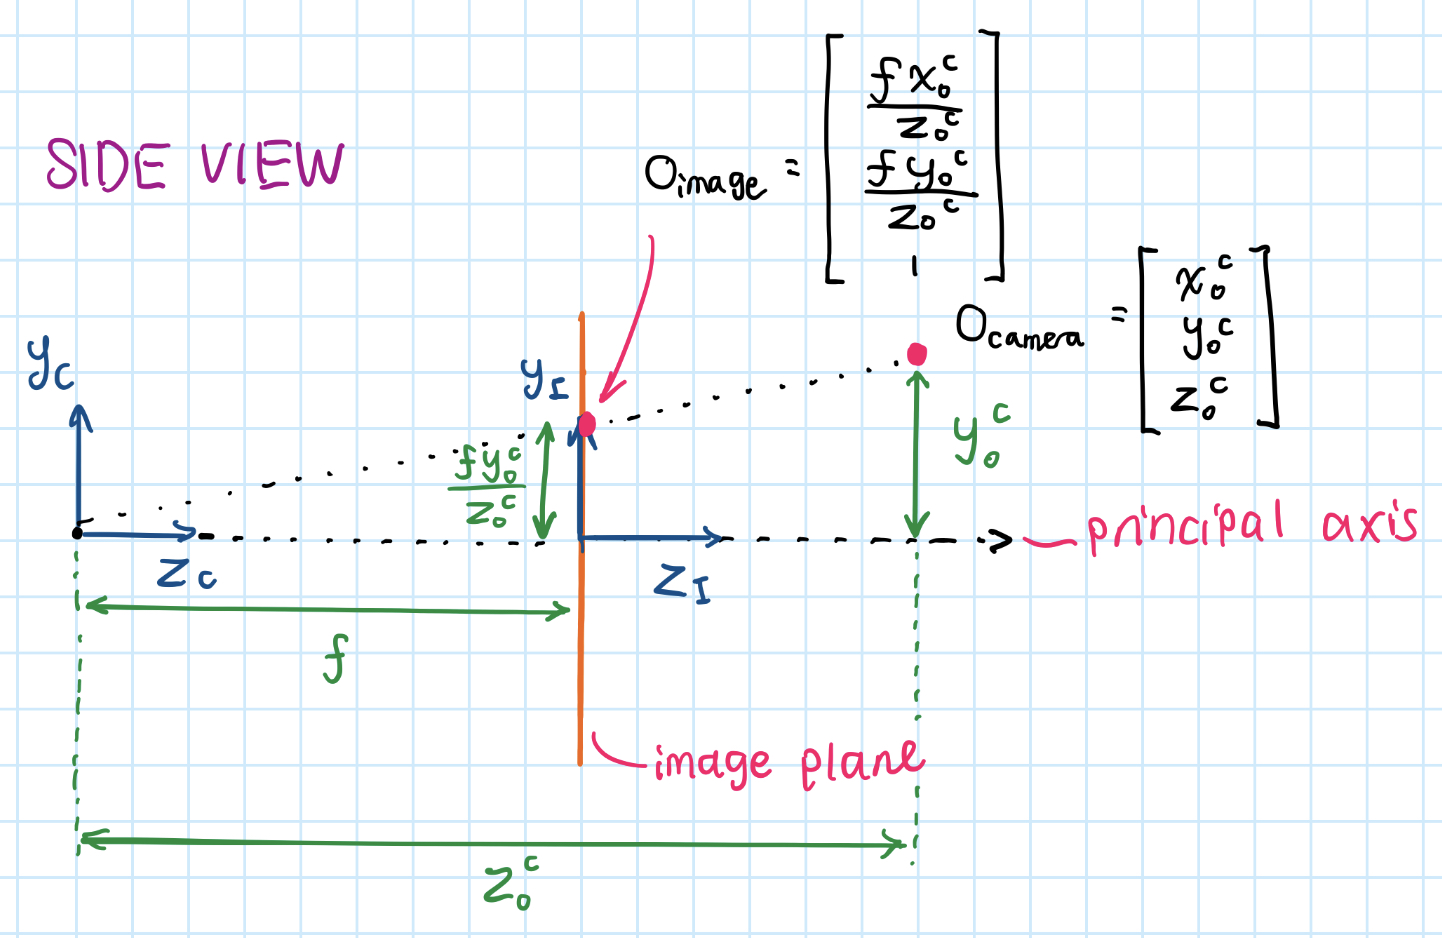 SIDE VIEW
O_image = [ f x_o^c / z_o^c
f y_o^c / z_o^c
1 ]
O_camera = [ x_o^c
y_o^c
z_o^c ]
y_c
y_I
f y_o^c / z_o^c
y_o^c
principal axis
z_c
z_I
f
image plane
z_o^c